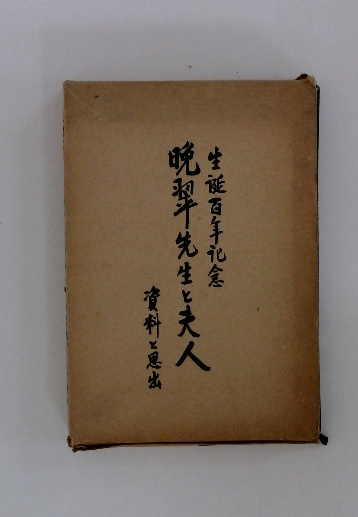 生誕百年記念
晩翠先生と夫人
資料と思出